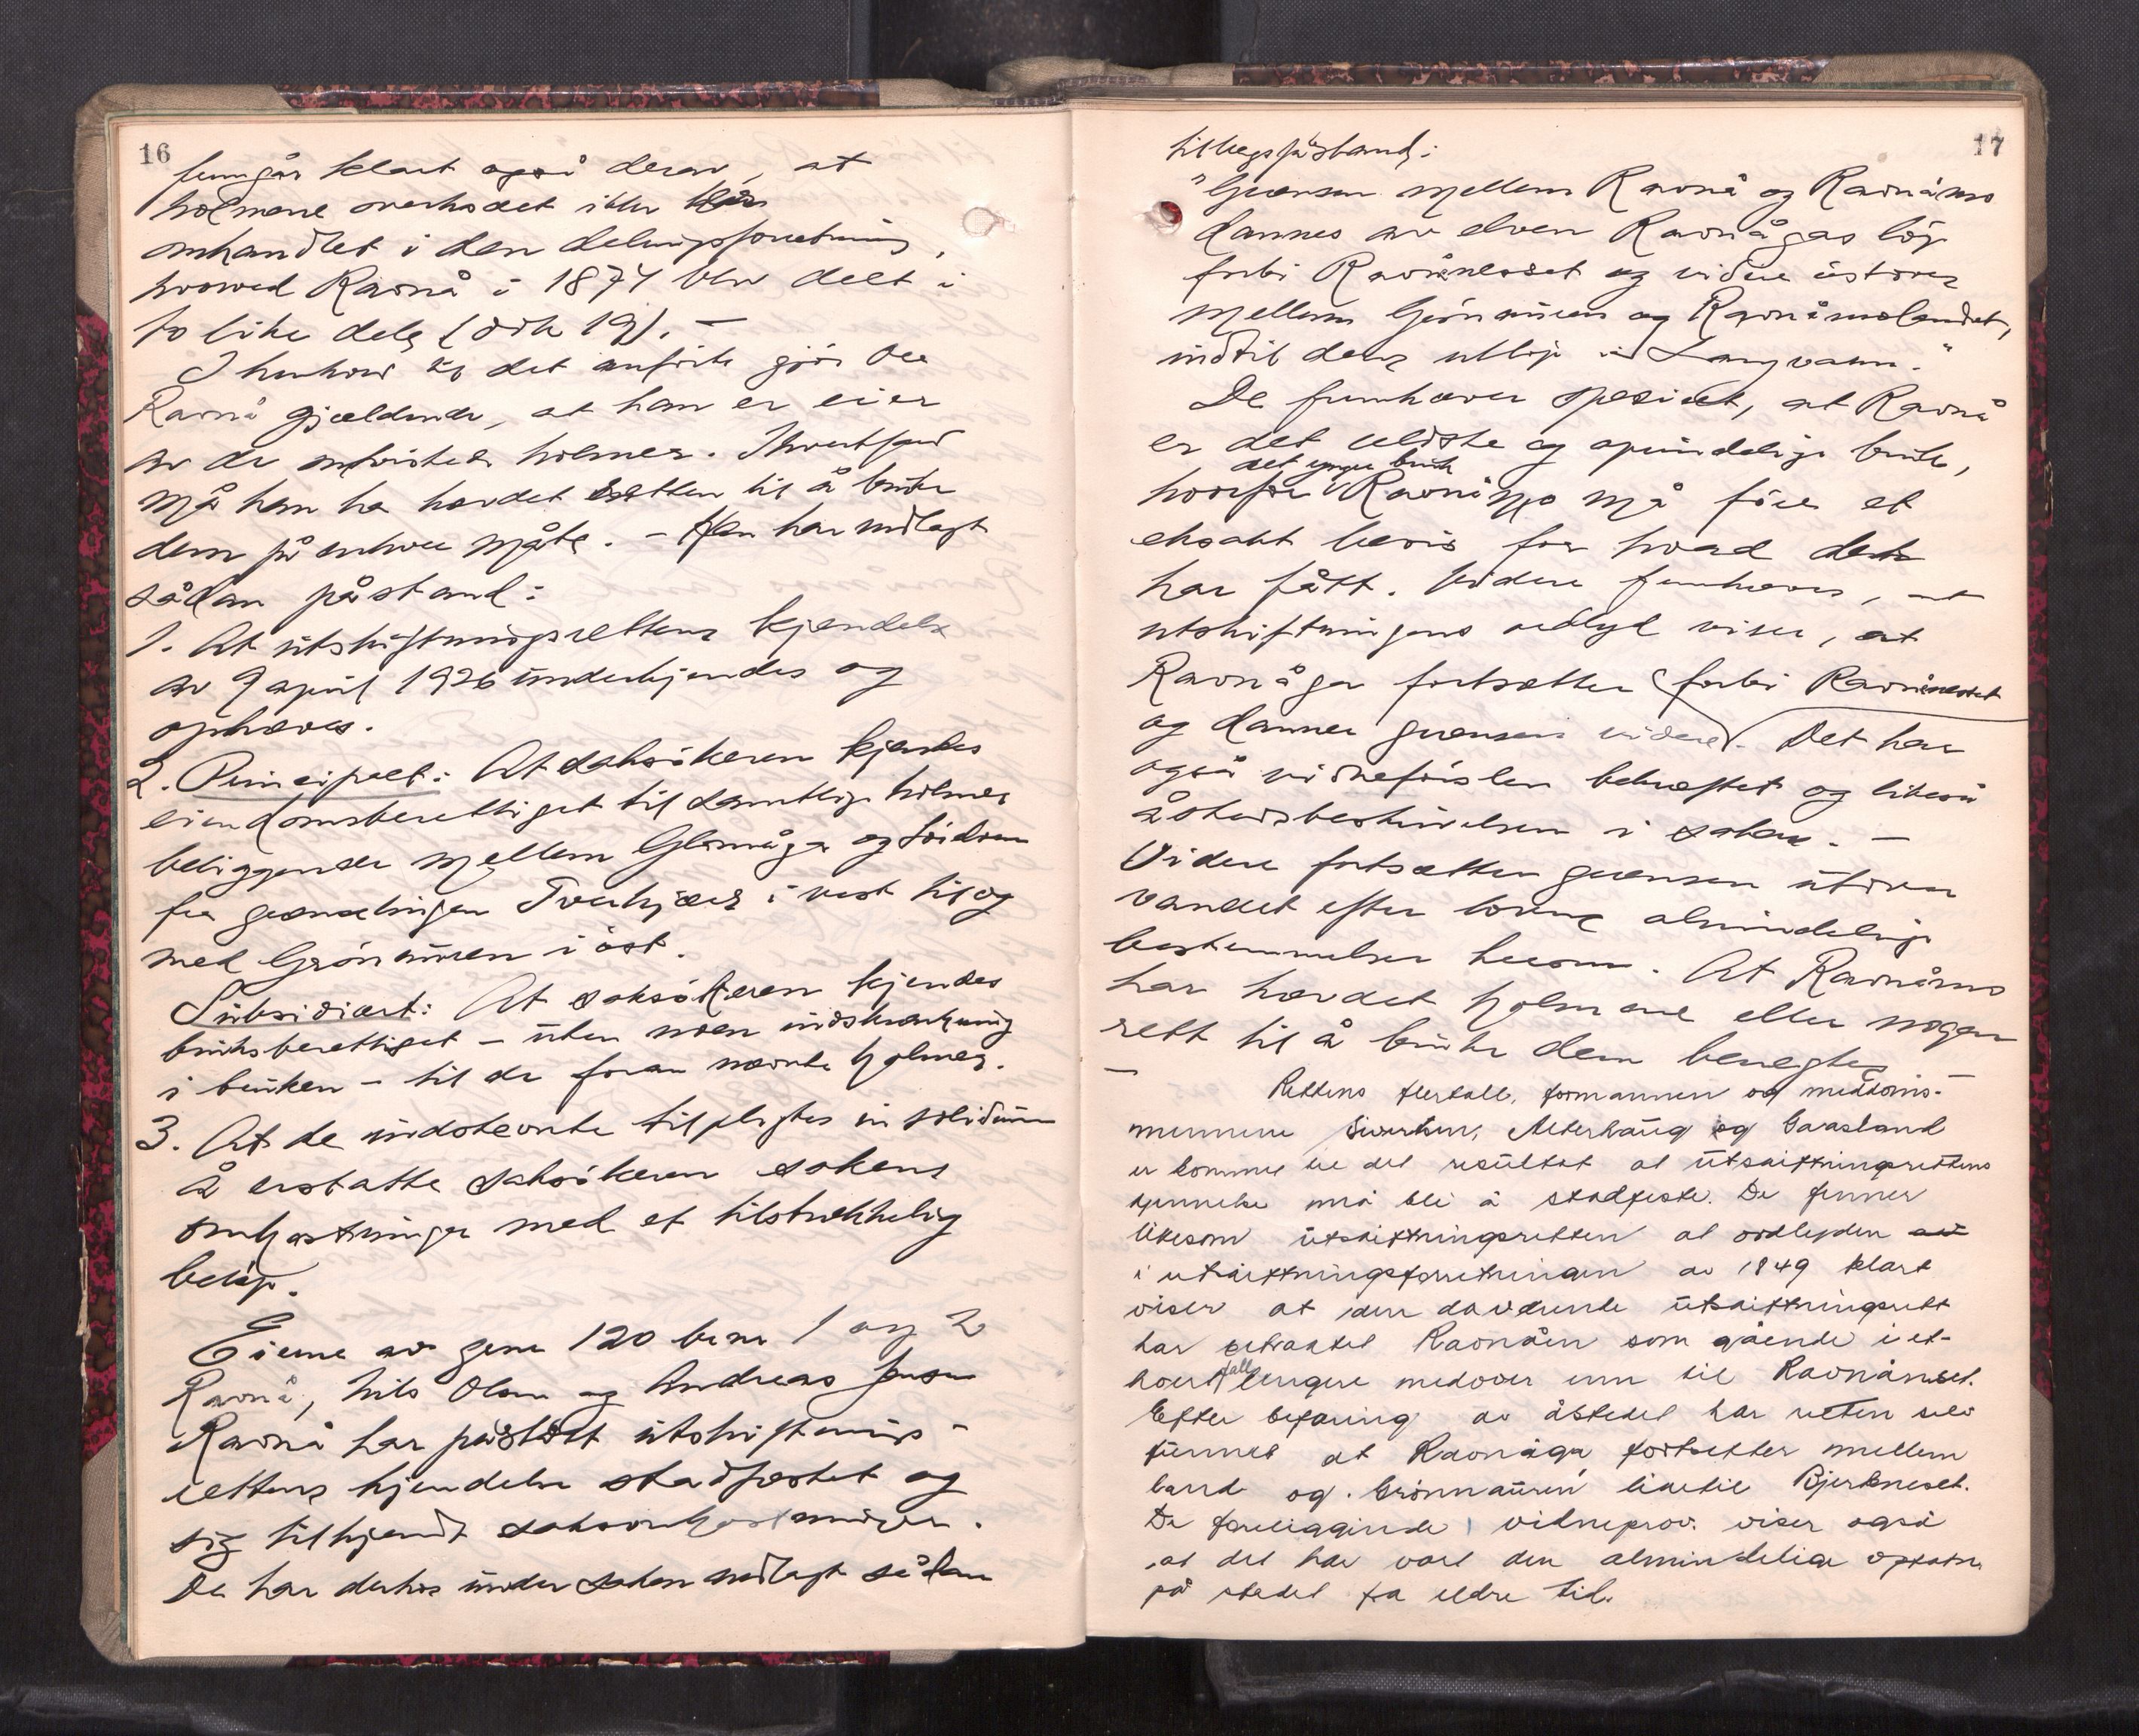 16
fremgår klart også derav, at
holmene overhodet ikke blev
omhandlet i den delingsforretning,
hvorved Ravnå i 1874 blev delt i
to like dele (dok 19). –
I henhold til det anførte gjør Ole
Ravnå gjældende, at han er eier
av de omtvistede holmer. I hvertfald
må han ha hævdet retten til å bruke
dem på enhver måte. – Han har nedlagt
sådan påstand:
1. At utskiftningsrettens kjendelse
av 9 april 1926 underkjendes og
ophæves.
2. Principalt: At saksøkeren kjendes
eiendomsberettiget til samtlige holmer
beliggende mellem Glomåga og
fra grænselinjen Tverkjær i vest til og
med Grønauren i øst.
Subsidiært: At saksøkeren kjendes
bruksberettiget – uten noen indskrænkning
i bruken – til de foran nævnte holmer.
3. At de indstevnte tilpligtes in solidum
å erstatte saksøkeren sakens
omkostninger med et tilstrækkelig
beløp.
Eierne av gnr 120 bnr 1 og 2
Ravnå, Nils Olsen og Andreas Jensen
Ravnå har påstått utskiftnings-
rettens kjendelse stadfæstet og
sig tilkjendt saksomkostninger.
De har derhos under saken nedlagt sådan
17
tillegspåstand:
"Grænsen mellem Ravnå og Ravnåmo
dannes av elven Ravnågas løp
forbi Ravnåneset og videre østover
mellem Grønauren og Ravnåmolandet,
indtil dens utløp i Langvann."
De fremhæver spesielt, at Ravnå
er det eldste og oprindelige bruk,
det yngre bruk
hvorfor Ravnåmo må føre et
eksakt bevis for hvad dets
har fått. Videre fremhæves, at
utskiftningens ordlyd viser, at
Ravnåga fortsætter forbi Ravnåneset
og danner grænsen videre. Det har
også vidneførslen bekræftet og likeså
åstedsbeskrivelsen i saken. –
Videre fortsætter grænsen utover
vandet efter lovens almindelige
bestemmelser herom. At Ravnåmo
har hævdet holmene eller nogen
rett til å bruke dem benegtes.
– –
Rettens flertall, formannen og meddoms-
mennene Sivertsen, Alterhaug og Gaasland
er kommet til det resultat at utskiftningsrettens
kjennelse må bli å stadfeste. De finner
likesom utskiftningsretten at ordlyden
i utskiftningsforretningen av 1849 klart
viser at den daværende utskiftningsrett
har betraktet Ravnåen som gående i et-
hvert fall lengere nedover enn til Ravnåneset.
Efter befaring av åstedet har retten selv
funnet at Ravnåga fortsetter mellem
land og Grønnauren like til Bjerkneset.
De foreliggende vitneprov viser også
at det har vært den almindelige opfatn.
på stedet fra eldre tid.